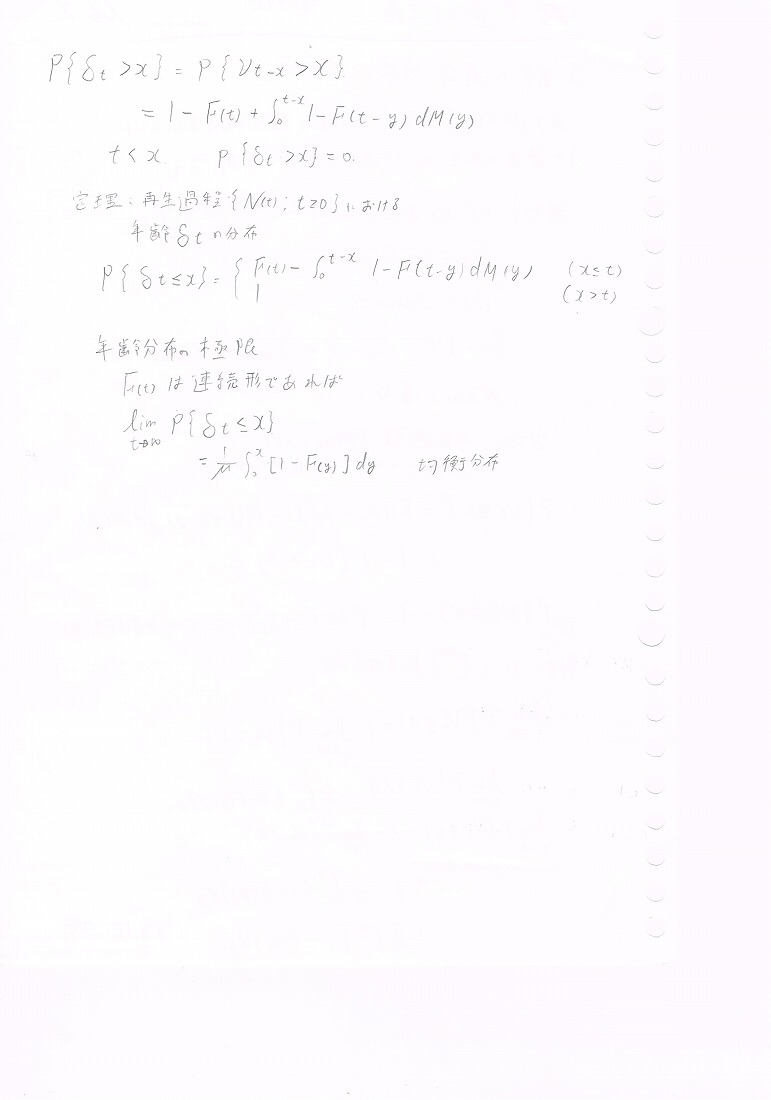 P{δt >x} = P{νt-x > x}
= 1 - F(t) + ∫₀^{t-x} 1 - F(t-y) dM(y)
t < x   P{δt >x} = 0.
定理: 再生過程{N(t); t≥0}における
年齢δtの分布
P{δt ≤x} = { F(t) - ∫₀^{t-x} 1 - F(t-y) dM(y)   (x≤t)
1   (x>t)
年齢分布の極限
F(t)は連続形であれば
lim P{δt ≤ x}
t→∞
= 1/μ ∫₀^x [1 - F(y)] dy   均衡分布